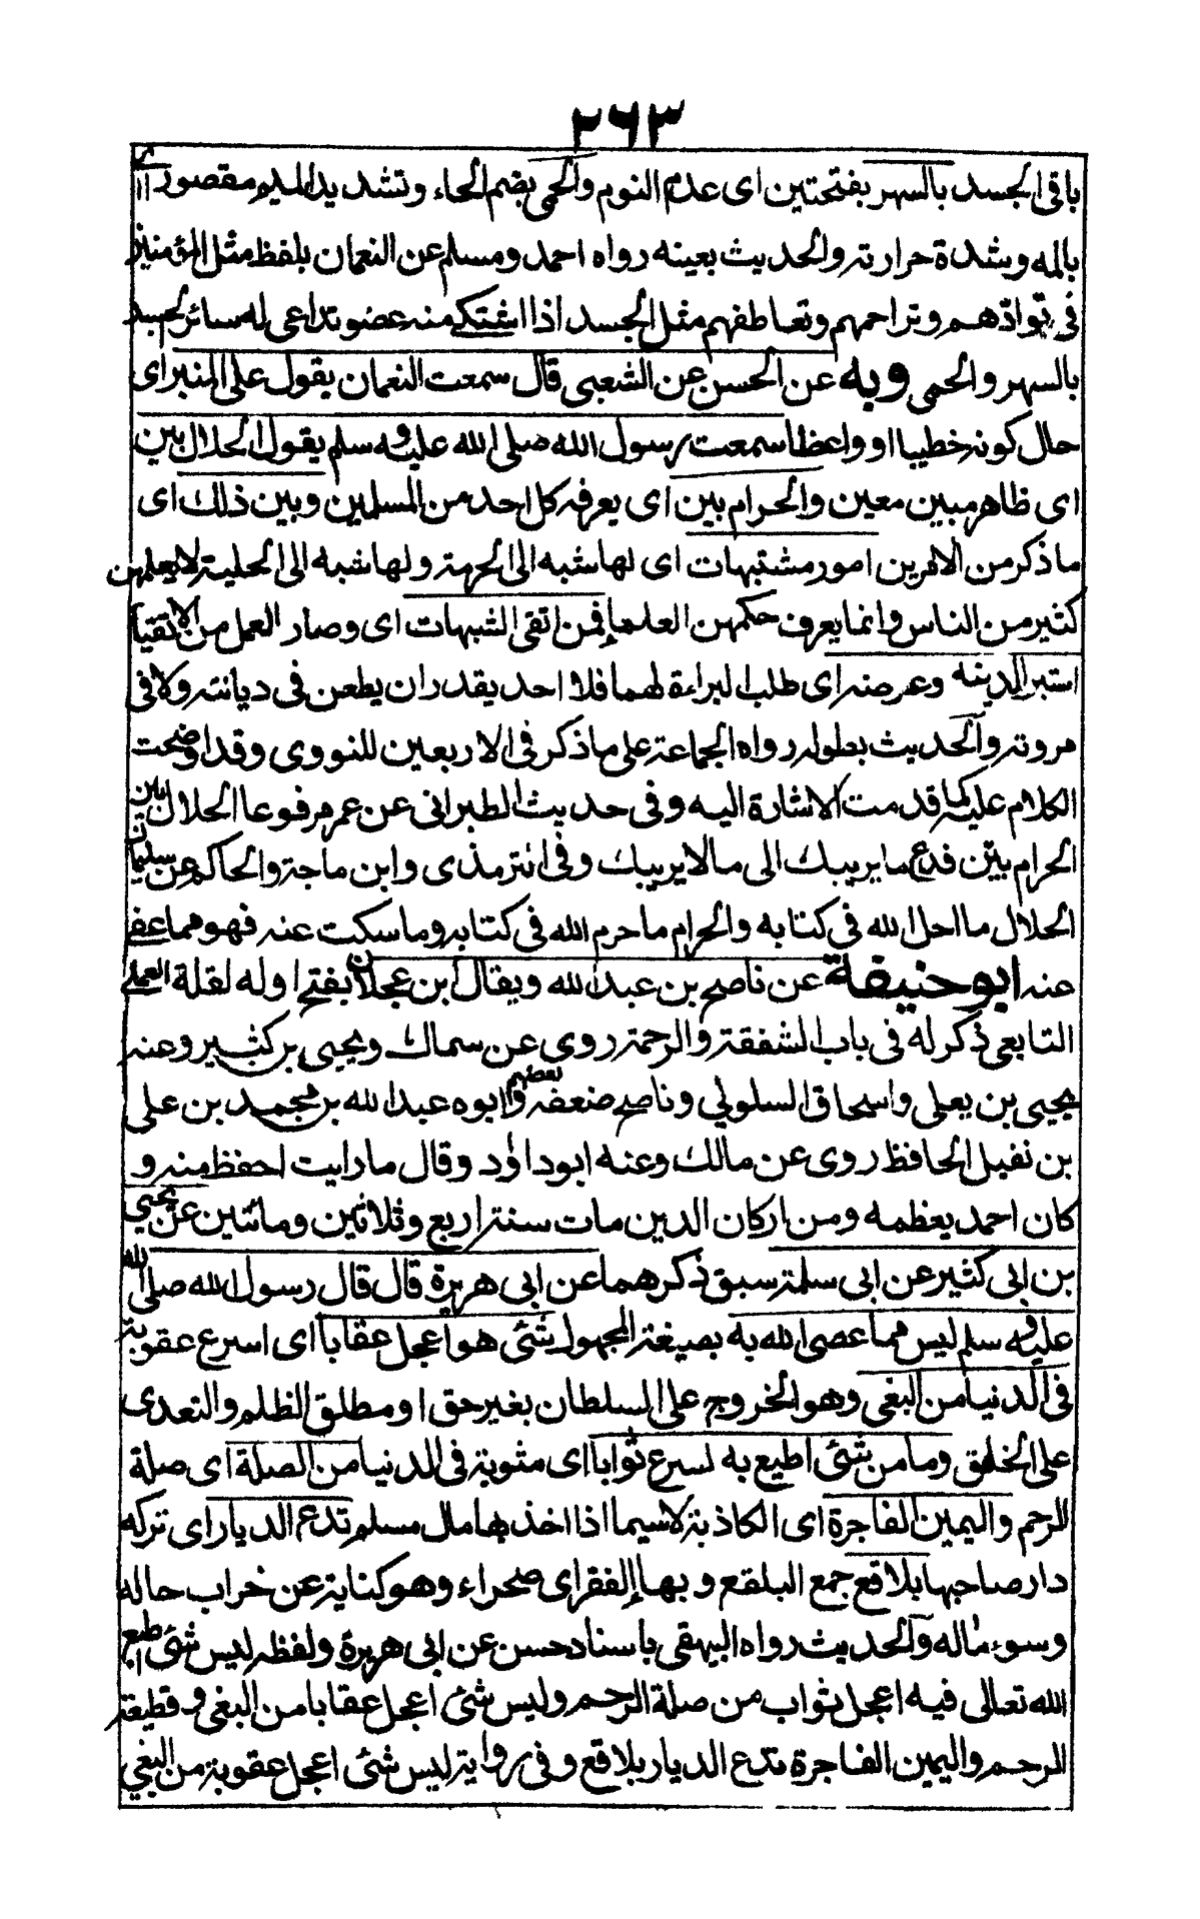 ٢٦٣
باقى الجسد بالسهر بفتحتين اى عدم النوم والحمى بضم الحاء وتشديد الميم مقصورا اى
بالمه وشدة حرارته والحديث بعينه رواه احمد ومسلم عن النعمان بلفظ مثل المؤمنين
فى توادّهم وتراحمهم وتعاطفهم مثل الجسد اذا اشتكى منه عضو تداعى له سائر الجسد
بالسهر والحمى وبه عن الحسن عن الشعبى قال سمعت النعمان يقول على المنبر اى
حال كونه خطيبا او واعظا سمعت رسول الله صلى الله عليه وسلم يقول الحلال بين
اى ظاهر مبين معين والحرام بين اى يعرفه كل احد من المسلمين وبين ذلك اى
ما ذكر من الامرين امور مشتبهات اى لها شبه الى الحرمة ولها شبه الى الحلية لا يعلمهن
كثير من الناس وانما يعرف حكمهن العلماء فمن اتقى الشبهات اى وصار العمل من الاتقياء
استبرا لدينه وعرضه اى طلب البراءة لهما فلا احد يقدر ان يطعن فى ديانته ولا فى
مروته والحديث بطوله رواه الجماعة على ما ذكر فى الاربعين للنووى وقد اوضحت
الكلام عليه كما قدمت الاشارة اليه وفى حديث الطبرانى عن عمر مرفوعا الحلال بين
الحرام بيّن فدع ما يريبك الى ما لا يريبك وفى الترمذى وابن ماجة والحاكم عن سليمان
الحلال ما احل الله فى كتابه والحرام ما حرم الله فى كتابه وما سكت عنه فهو مما عفى
عنه ابو حنيفة عن ناصح بن عبد الله ويقال ابن عجلان بفتح اوله لقلة العملى
التابعى ذكر له فى باب الشفقة والرحمة روى عن سماك ويحيى بن كثير وعنه
يحيى بن يعلى واسحاق السلولي وناصح ضعفه بعضهم وابوه عبد الله بن محمد بن على
بن نفيل الحافظ روى عن مالك وعنه ابو داؤد وقال ما رايت احفظ منه و
كان احمد يعظمه ومن اركان الدين مات سنة اربع وثلاثين ومائتين عن يحيي
بن ابى كثير عن ابى سلمة سبق ذكرهما عن ابى هريرة قال قال رسول الله صلى الله
عليه وسلم ليس مما عصى الله به بصيغة المجهول شئى هو اعجل عقابا اى اسرع عقوبة
فى الدنيا من البغى وهو الخروج على السلطان بغير حق او مطلق الظلم والتعدى
على الخلق وما من شئى اطيع به لسرع ثوابا اى مثوبة فى الدنيا من الصلة اى صلة
الرحم واليمين الفاجرة اى الكاذبة لاسيما اذا اخذ بها مال مسلم تدع الديار اى تركه
دار صاحبها بلاقع جمع البلقع وبهاء الفقر اى صحراء وهو كناية عن خراب حاله
وسوء ماله والحديث رواه البيهقى باسناد حسن عن ابى هريرة ولفظه ليس شئى اطيع
الله تعالى فيه اعجل ثواب من صلة الرحم وليس شئ اعجل عقابا من البغى وقطيعة
الرحم واليمين الفاجرة تدع الديار بلاقع وفى رواية ليس شئى اعجل عقوبة من البغي